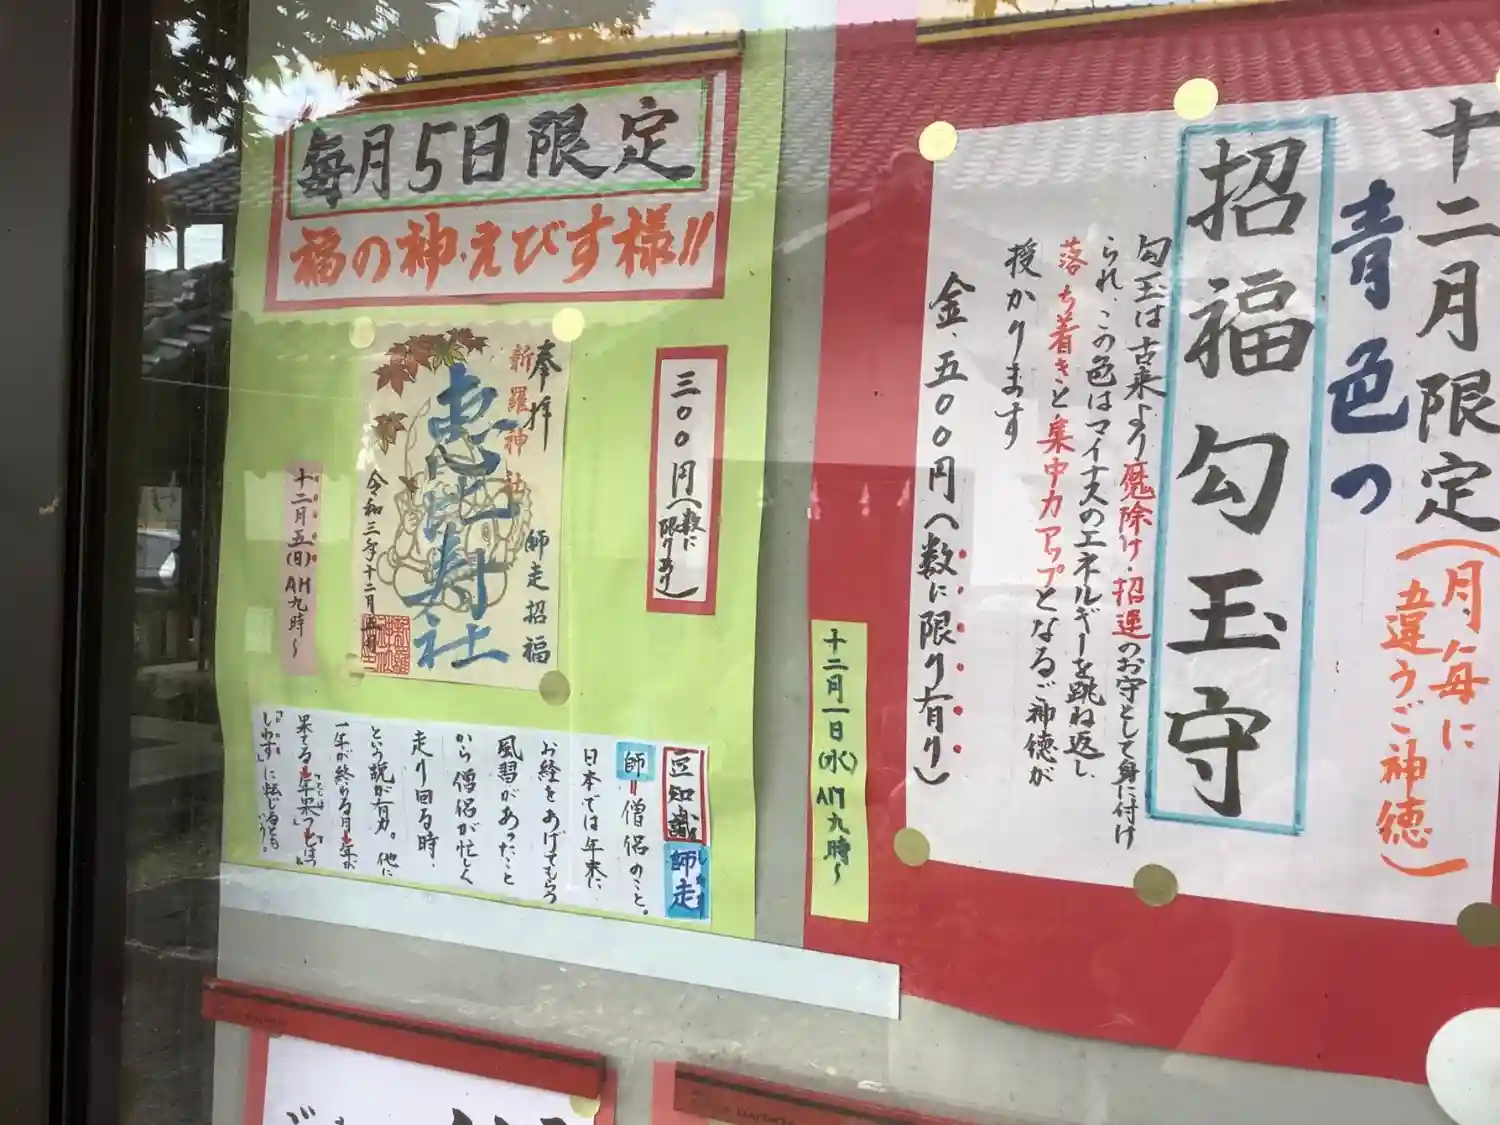 毎月5日限定
福の神・えびす様!!
三〇〇円(数に限りあり)
奉拝
新羅神社
恵比寿社
師走招福
令和三年十二月五日
十二月五(日)AM九時〜
豆知識 師走
師=僧侶のこと。
日本では年末に
お経をあげてもらう
風習があったこと
から僧侶が忙しく
走り回る時、
という説が有力。他に
一年が終わる月=年が
果てる=年果つとしはつ
「しわす」に転じるとも
いう。
十二月限定(月毎に
違うご神徳)
青色の
招福勾玉守
勾玉は古来より魔除け・招運のお守として身に付け
られ、この色はマイナスのエネルギーを跳ね返し
落ち着きと集中力アップとなるご神徳が
授かります
金、五〇〇円(数に限り有り)
十二月一日(水)AM九時〜